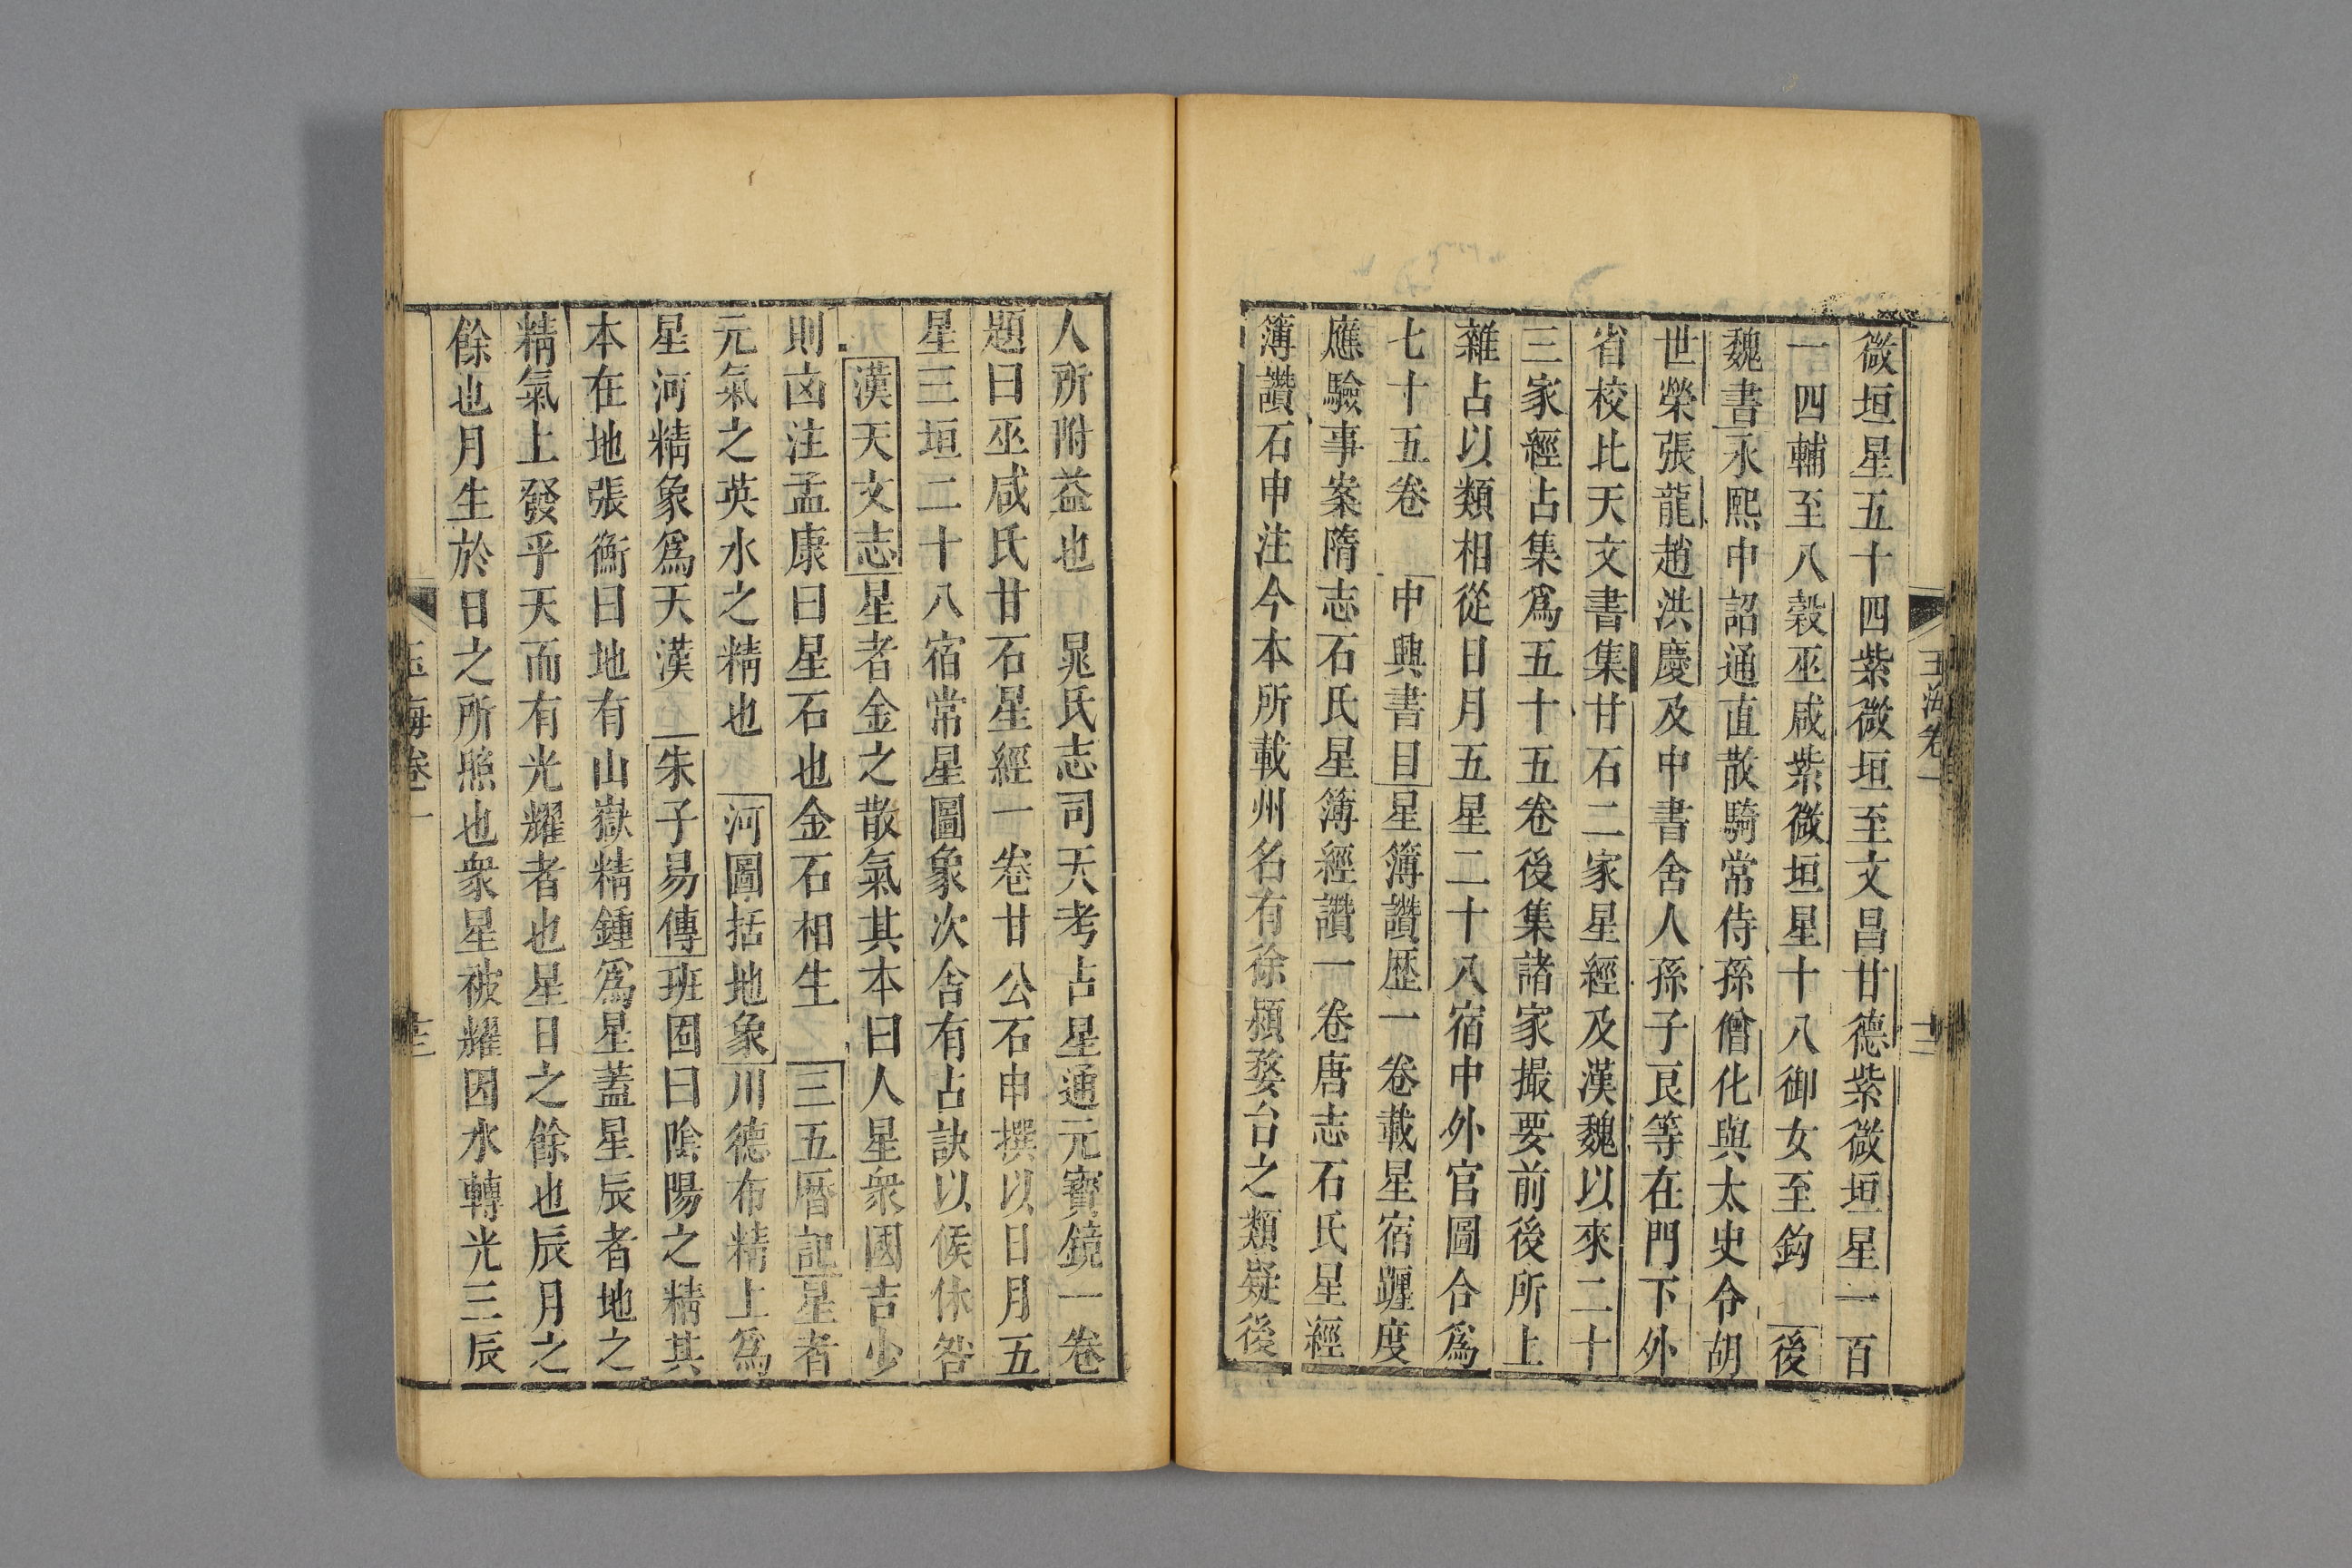 微垣星五十四紫微垣至文昌甘德紫微垣星一百
一四輔至八榖巫咸紫微垣星十八御女至鈎後
魏書永熙中詔通直散騎常侍孫僧化與太史令胡
世榮張龍趙洪慶及中書舍人孫子良等在門下外
省校比天文書集甘石二家星經及漢魏以來二十
三家經占集爲五十五卷後集諸家撮要前後所上
雜占以類相從日月五星二十八宿中外官圖合爲
七十五卷中興書目星簿讚歷一卷載星宿躔度
應驗事案隋志石氏星簿經讚一卷唐志石氏星經
簿讚石申注今本所載州名有徐潁婺台之類疑後
玉海卷一
十三
人所附益也晁氏志司天考占星通元寶鏡一卷
題曰巫咸氏甘石星經一卷甘公石申撰以日月五
星三垣二十八宿常星圖象次舍有占訣以候休咎
漢天文志星者金之散氣其本曰人星衆國吉少
則凶注孟康曰星石也金石相生三五曆記星者
元氣之英水之精也河圖括地象川德布精上爲
星河精象爲天漢朱子易傳班固曰陰陽之精其
本在地張衡曰地有山嶽精鍾爲星蓋星辰者地之
精氣上發乎天而有光耀者也星日之餘也辰月之
餘也月生於日之所照也衆星被耀因水轉光三辰
玉海卷一